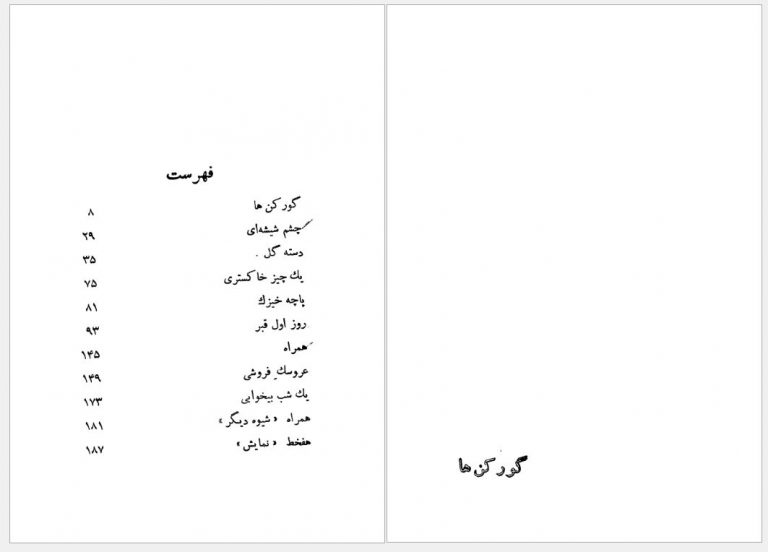 فهرست
گورکن ها ۸
چشم شیشه‌ای ۲۹
دسته گل ۳۵
یك چیز خاکستری ۷۵
پاچه خیزك ۸۱
روز اول قبر ۹۳
همراه ۱۴۵
عروسك فروشی ۱۴۹
یك شب بیخوابی ۱۷۳
همراه «شیوه دیگر» ۱۸۱
هفخط «نمایش» ۱۸۷
گورکن ها